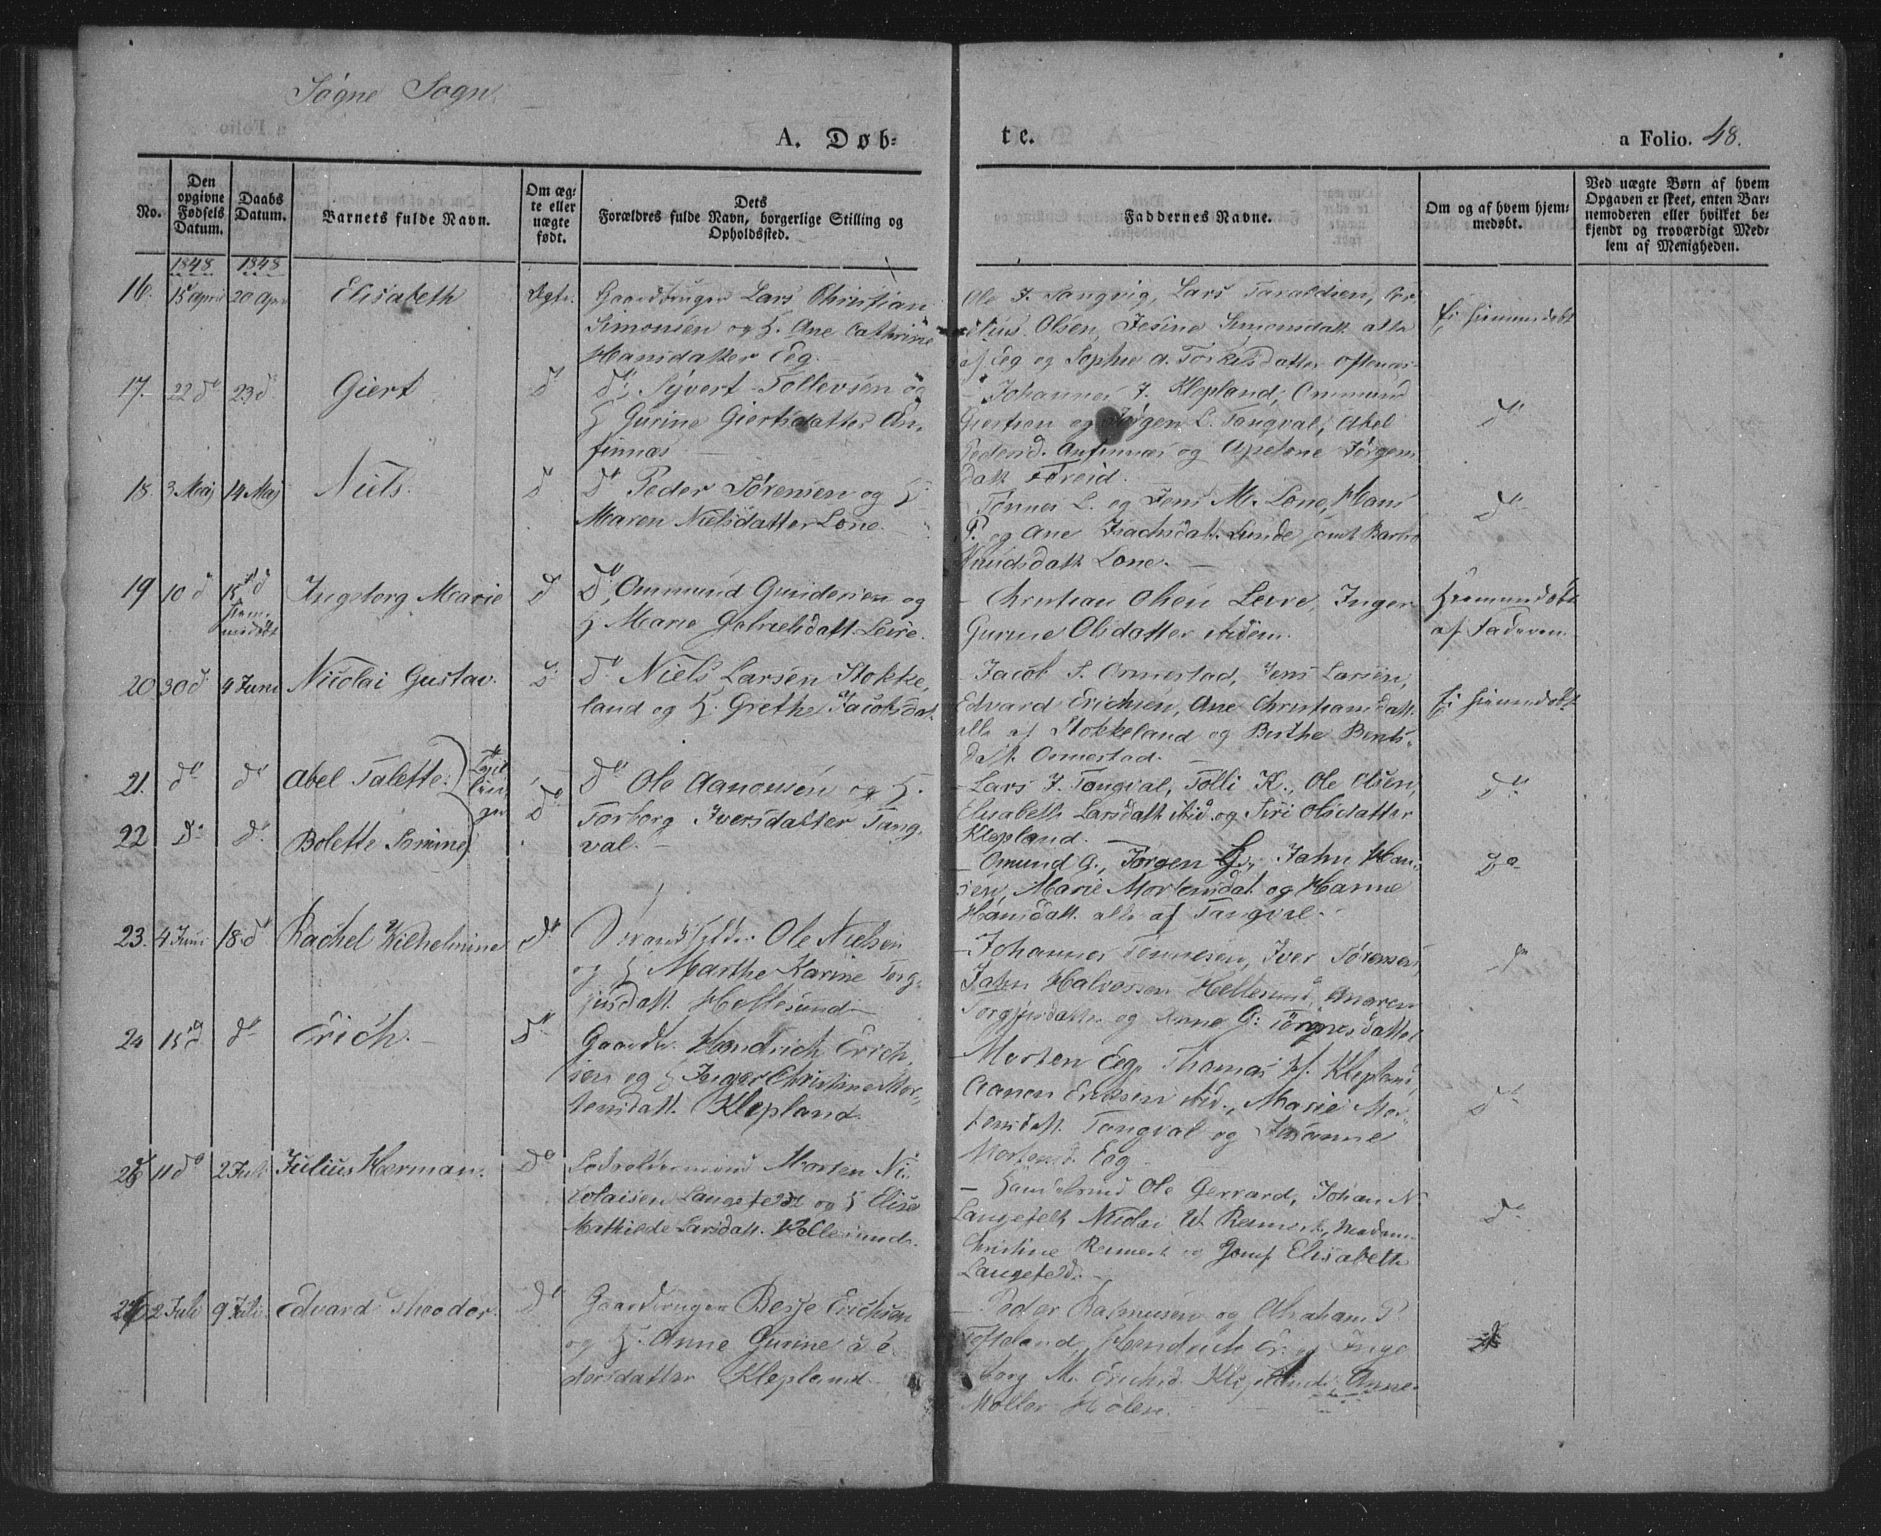 Søgne Sogn.
A. Døb-
te.
a Folio. 48.
No.
Den opgivne Fødsels Datum.
Daabs Datum.
Barnets fulde Navn.
Om æg-
te eller
uægte
født.
Dets
Forældres fulde Navn, borgerlige Stilling og
Opholdssted.
Faddernes Navne.
Om og af hvem hjem-
medøbt.
Ved uægte Børn af hvem
Opgaven er skeet, enten Bar-
nemoderen eller hvilket be-
kjendt og troværdigt Med-
lem af Menigheden.
1848 1848
16. 15 April 20 Apr Elisabeth Ægte
Gaardbruger Lars Christian
Simonsen og H. Ane Cathrine
Hansdatter Eeg.
Ole J. Tangvig, Lars Taraldsen,
Olsen, Jesine Simonsdatt alle
af Eeg og Sophie A. Torkelsdatter
Ei hjemmedøbt
17. 22 do 23 d Giert do
do Syvert Tollevsen og
H Gurine Giertsdatter An-
finnæs
Johannes J. Klepland, Ommund
Giertsen og Jørgen L. Tangval, Abel
Pedersd. Anfinnæs og Apelone Jørgens
datt Føreid.
do
18. 3 Maj 14 Maj Niels. do
do Peder Sørensen og H
Maren Nielsdatter Lone
Tønnes L. og Jens M. Lone, Hans
P. og Ane Isachsdat. Lunde samt
Knudsdatt Lone.
do
19 10 d 15 d
hjem-
medøbt
Ingeborg Marie d
do Ommund Gundersen og
H Marie Gabrielsdatt Leire.
Christian Olsen Leire, Inger
Gurine Olsdatter ibidem.
Hjemmedøbt
af Faderen
20 30 d 4 Juni Nicolai Gustav. do
do Niels Larsen Stokke-
land og H. Grethe Jacobsdat.
Jacob S. Ormestad, Jens Larsen,
Edvard Erichsen, Ane Christiansdatt
alle af Stokkeland og Berthe Bents-
datt Ormestad.
Ei hjemmedøbt
21. do do Abel Talette.
Tvil-
lin-
ger
do
do Ole Aanonsen og H.
Torborg Iversdatter Tang-
val.
Lars J. Tangval, Tolli K., Ole Olsen,
Elisabeth Larsdatt ibid. og Siri Olsdatter
Klepland.
do
22 do do Bolette Tomine
Omund G., Jørgen G., Jahn Han-
sen, Marie Mortensdat og Hanne
Hansdatt. alle af Tangval.
do
23. 4 Juni 18 do Rachel Wilhelmine do
Strandsidder Ole Nielsen
og H Marthe Karine Torg-
jusdatt. Hellesund
Johannes Tønnesen, Iver Sørensen,
Jahn Halvorsen Hellesund, Maren
Torgjusdatter og Anne G:
do
24 15 d do Erich. do
Gaardbr. Hendrich Erich-
sen og H Inger Christine Mor-
tensdatt. Klepland.
Morten Eeg, Thomas H. Klepland,
Aanon Ericksen ibid., Marie Mor-
tensdatt. Tangval og Susanne
Mortensd. Eeg
do
25 11 do 2 Juli Julius Herman. do
Lodsoldermand Morten Ni-
colaisen Langefeldt og H Elise
Mathilde Larsdatt. Hellesund.
Handelsmd Ole Gerrard, Johan N.
Langefelt, Nicolai W. Reimert, Madam
Christine Reimert og Jomf Elisabeth
Langefeldt.
do
26 2 Juli 9 Juli Edvard Theodor. do
Gaardbruger Berje Erichsen
og H. Anne Gurine Pe-
dersdatter Klepland
Peder Rasmusen og Abraham P.
Tofteland, Hendrich Er: og Inge-
borg M. Erichsd. Klepland, Anne
Møller Hølen.